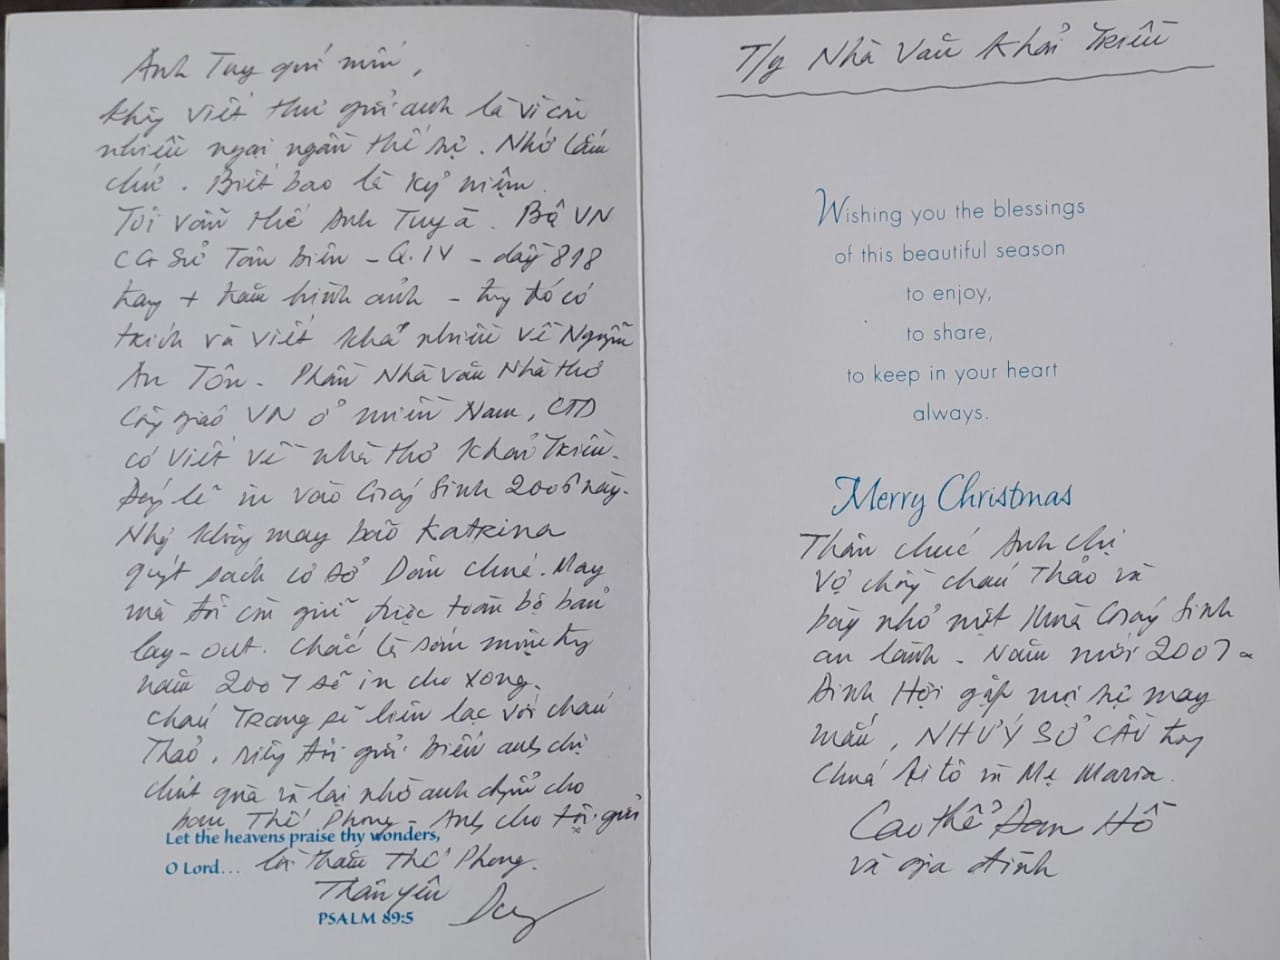 Anh Tuy quí mến,
Không viết thư gửi anh là vì còn
nhiều ngại ngần thế sự. Nhớ lắm
chứ. Biết bao là kỷ niệm.
Tôi vẫn thế Anh Tuy ạ. Bộ VN
CG Sử Tân Biên - Q.IV - dầy 898
trang + trăm hình ảnh - trg đó có
trích và viết khá nhiều về Nguyễn
An Tôn. Phần Nhà văn Nhà thơ
Công giáo VN ở miền Nam, CTD
có viết về nhà thơ Khải Triều.
Đáng lẽ in vào Giáng Sinh 2005 này.
Nhg không may bão Katrina
quét sạch cơ sở Dân Chúa. May
mà tôi còn giữ được toàn bộ bản
lay-out. Chắc là sớm muộn trg
năm 2007 sẽ in cho xong.
Cháu Trang sẽ liên lạc với cháu
Thảo. Riêng tôi gửi biếu anh chị
chút quà và lại nhờ anh chuyển cho
bạn Thế Phong - Anh cho tôi gửi
Let the heavens praise thy wonders,
O Lord... lời thăm Thế Phong.
Thân yêu
PSALM 89:5
T/g Nhà Văn Khải Triều
Wishing you the blessings
of this beautiful season
to enjoy,
to share,
to keep in your heart
always.
Merry Christmas
Thân chúc Anh chị
Vợ chồng cháu Thảo và
bầy nhỏ một Mùa Giáng Sinh
an lành - Năm mới 2007
Đinh Hợi gặp mọi sự may
mắn, NHƯ Ý SỞ CẦU trg
Chúa Kitô và Mẹ Maria.
Cao thế Dung Hồ
và gia đình